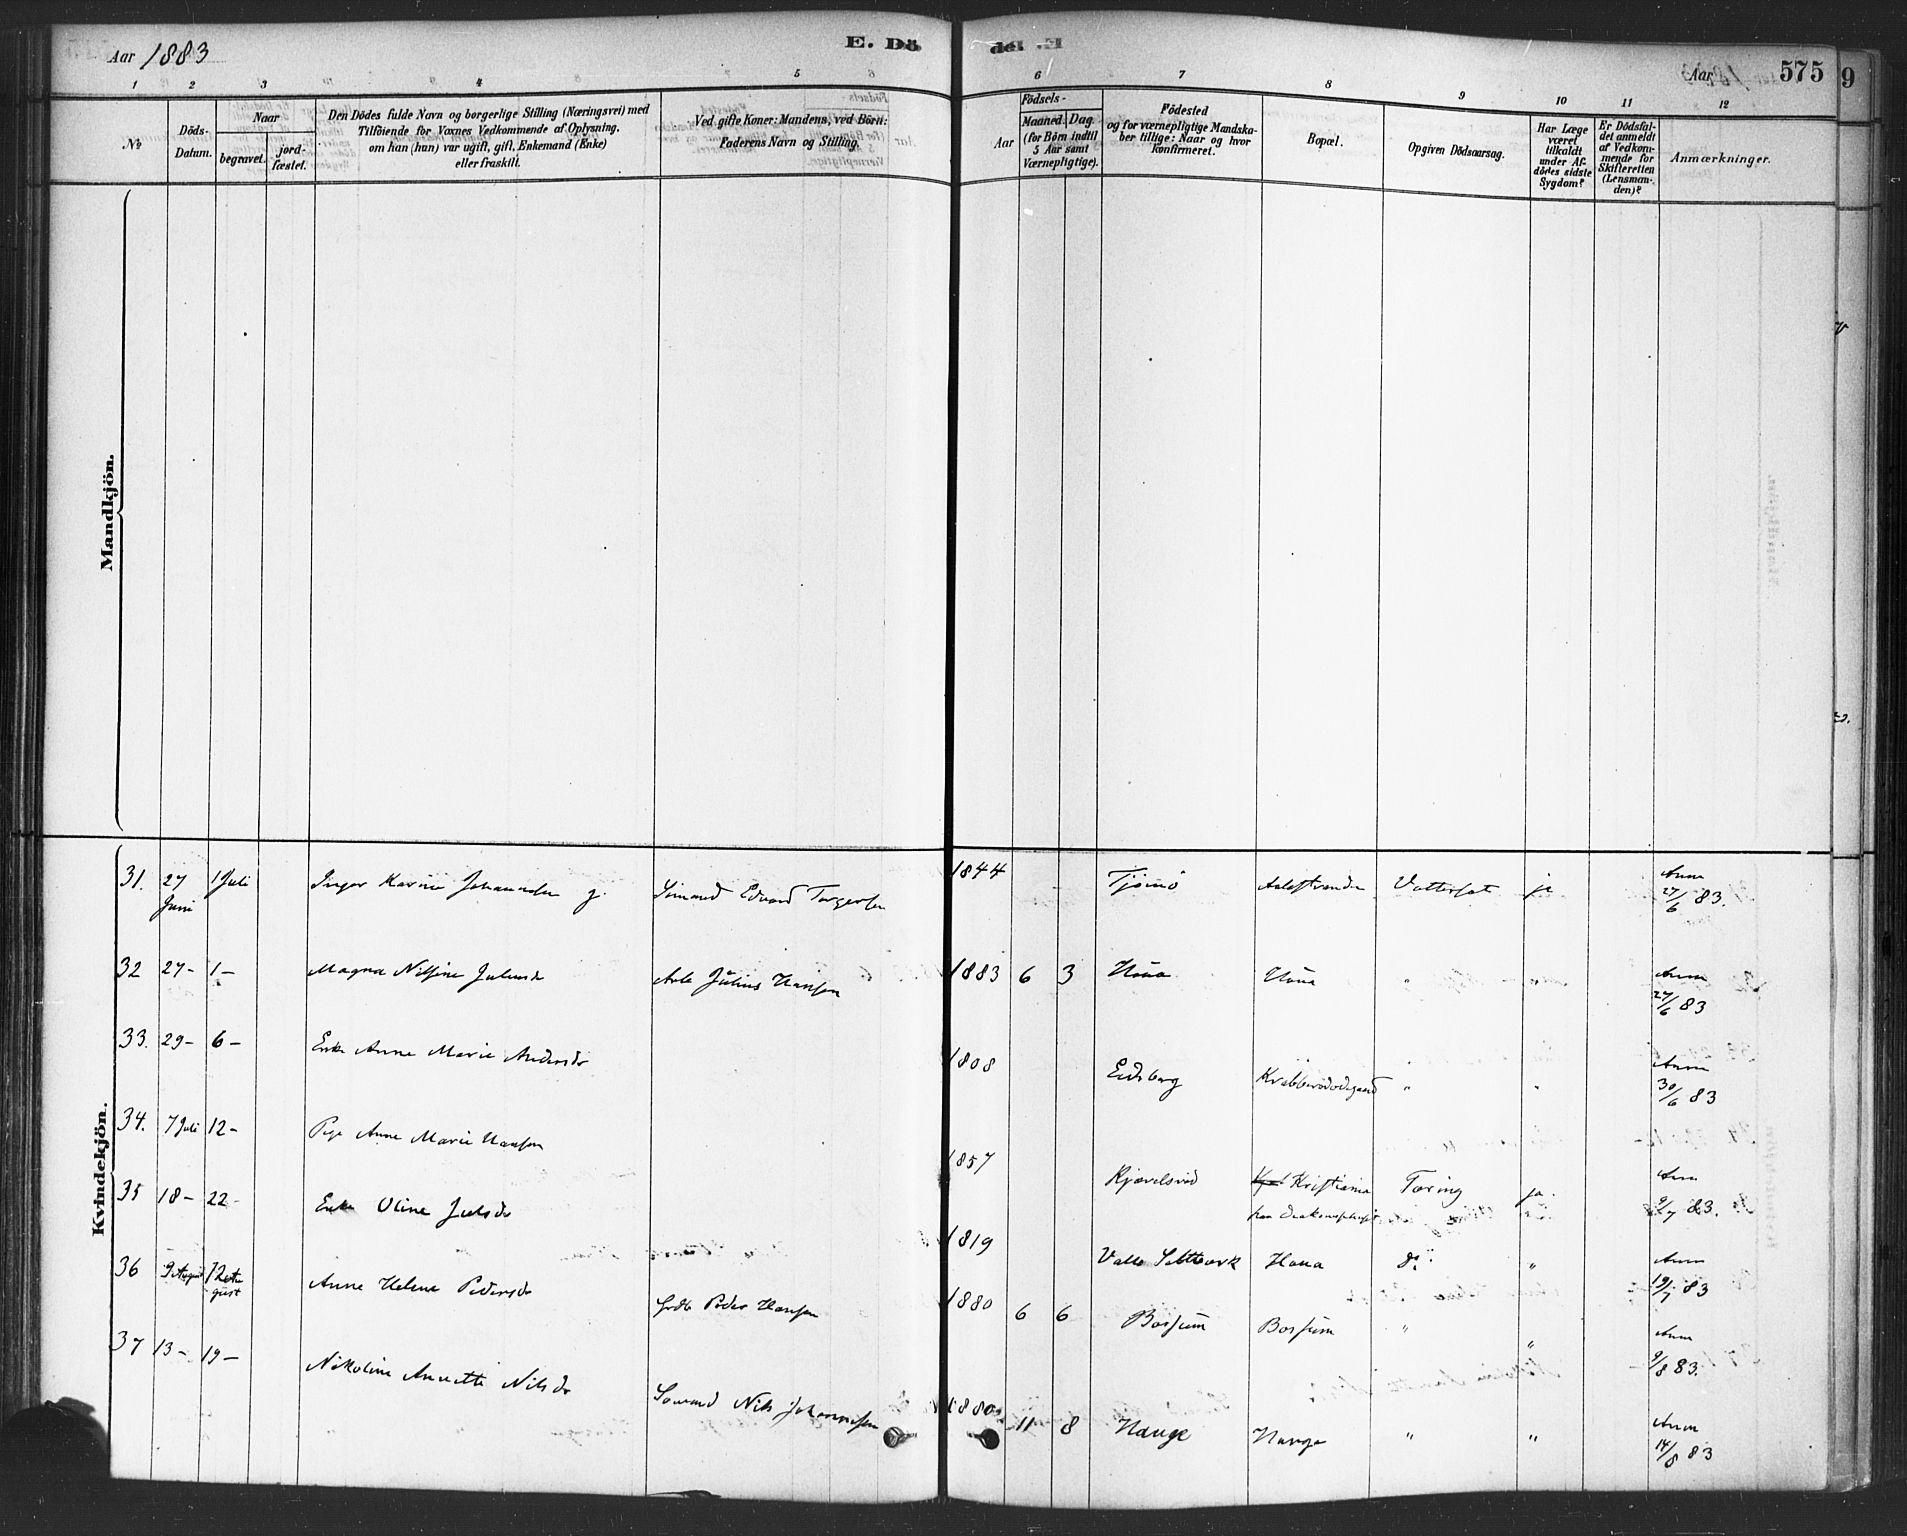 Aar 1883
E. Dö
575
9
1 2 3 4 5 6 7 8 9 10 11 12
№
Döds-
Datum.
Naar
begravet.
jord-
fæstet.
Den Dödes fulde Navn og borgerlige Stilling (Næringsvei) med
Tilföiende for Voxnes Vedkommende af Oplysning,
om han (hun) var ugift, gift, Enkemand (Enke)
eller fraskilt.
Ved gifte Koner: Mandens, ved Börn:
Faderens Navn og Stilling.
Födsels-
Aar
Maaned. Dag.
(for Börn indtil
5 Aar samt
Værnepligtige).
Födested
og for værnepligtige Mandska-
ber tillige: Naar og hvor
Konfirmeret.
Bopæl.
Opgiven Dödsaarsag.
Har Læge
været
tilkaldt
under Af-
dödes sidste
Sygdom?
Er Dödsfal-
det anmeldt
af Vedkom-
mende for
Skifteretten
(Lensman-
den)?
Anmærkninger.
Mandkjön.
Kvindekjön.
31. 27 Juni 1 Juli Inger Karine g. Sömand Edvard Torgersen 1844 Tjømø Vattersot ja Anm 27/6 83.
32 27- 1- Magna Nilsine Juliusdr Arb Julius Hansen 1883 6 3 Houa Houa " " Anm 27/6 83
33. 29- 6- Enke Anne Marie Andersdr 1808 Eidsberg " " Anm 30/6 83
34. 7 Juli 12- Pige Anne Marie Hansen 1857 Kjøvelsrød Kristiania Tæring ja. Anm 9/7 83.
35 18- 22- Enke Oline Julsdr 1819 Vallø Saltværk Houa do. " Anm 19/7 83
36 9 August 12 August Anne Helene Pedersdr Grdb Peder Hansen 1880 6 6 Borjum Borjum " " Anm 9/8 83.
37 13- 19- Nikoline Annette Nilsdr Sömand Nils Johannesen 1880 11 8 Hauge Hauge " " Anm 14/8 83